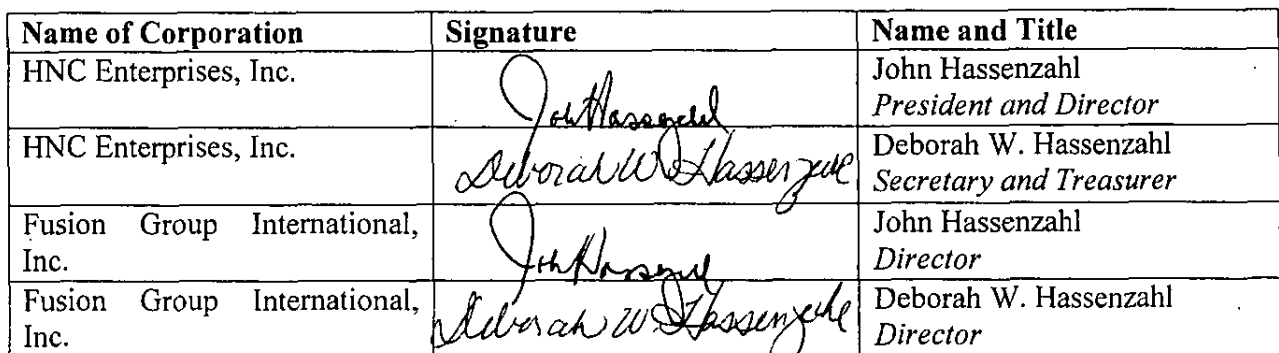 Name of Corporation Signature Name and Title
HNC Enterprises, Inc. John Hassenzahl John Hassenzahl
President and Director
HNC Enterprises, Inc. Deborah W. Hassenzahl Deborah W. Hassenzahl
Secretary and Treasurer
Fusion Group International, John Hassenzahl John Hassenzahl
Inc. Director
Fusion Group International, Deborah W. Hassenzahl Deborah W. Hassenzahl
Inc. Director